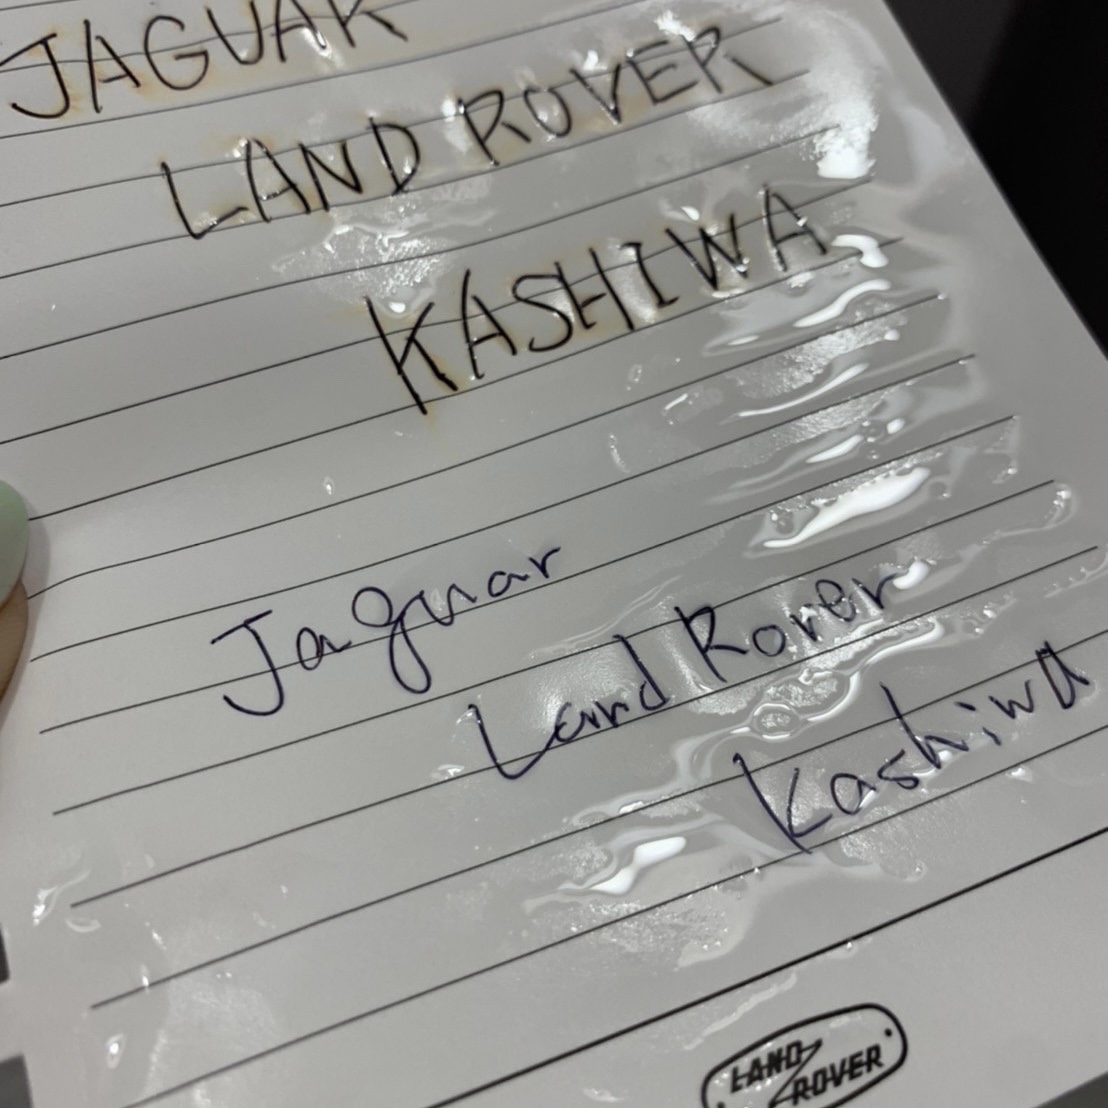 JAGUAR
LAND ROVER
KASHIWA
Jaguar
Land Rover
Kashiwa
LAND ROVER